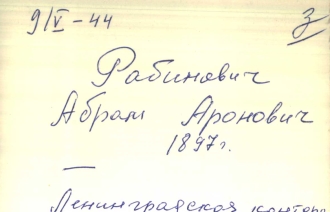 9/V-44
3
Рабинович
Абрам Аронович
1897г.
—
Ленинградская контора